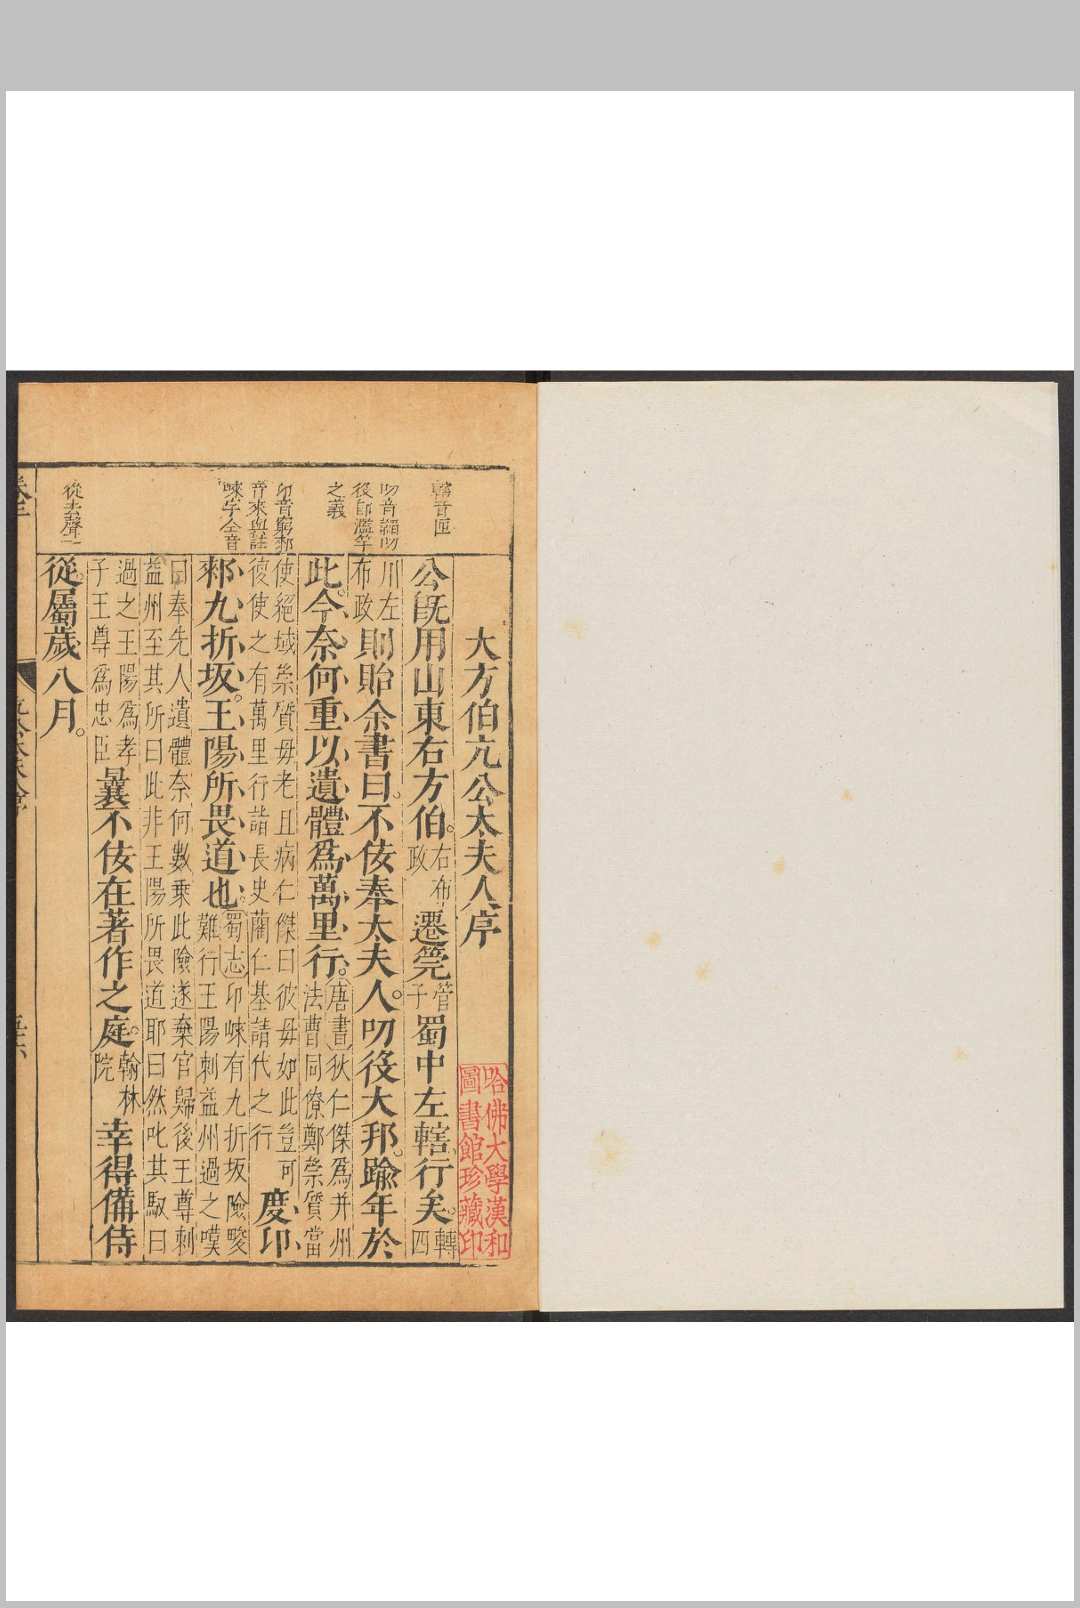 大方伯亢公太夫人序
公旣用山東右方伯。右布政遷筦管子蜀中左轄行矣。轉四
川左布政則貽余書曰。不佞奉太夫人。叨役大邦。踰年於
此。今奈何重以遺體爲萬里行。唐書狄仁傑爲并州法曹同僚鄭崇質當
使絕域崇質母老且病仁傑曰彼母如此豈可復使之有萬里行詣長史藺仁基請代之行度卬
郲九折坂。王陽所畏道也。蜀志卬崍有九折坂險峻難行王陽刺益州過之嘆
曰奉先人遺體奈何數乗此險遂棄官歸後王尊刺益州至其所曰此非王陽所畏道耶曰然叱其馭曰
過之王陽爲孝子王尊爲忠臣曩不佞在著作之庭。翰林院幸得備侍
從。屬歲八月。
轄音匣
叨音韜叨
役卽濫竽
之義
卬音窮郲
音來與註
崍字仝音
從去聲
卷三
哈佛大學漢和
圖書館珍藏印